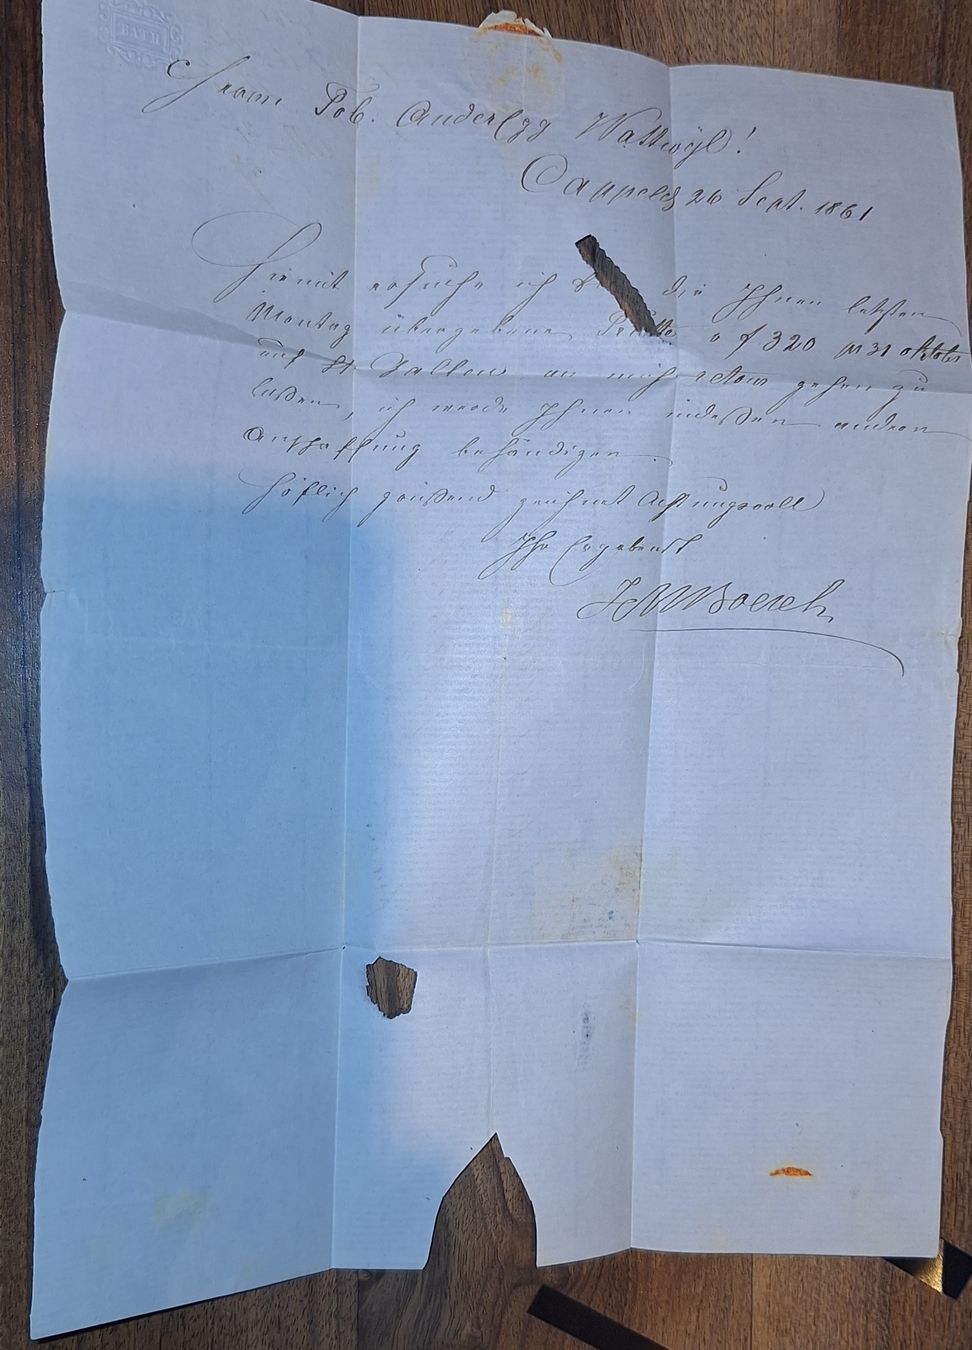 BATH
Herrn Tob. Anderegg Wattwyl!
Cappel 26 Sept. 1861
Hiemit ersuche ich die Ihnen letzten
Montag übergebene o f 320 pr 31 oktober
auf St. Gallen an mich retour gehen zu
laßen, ich werde Ihnen indeßen andere
Anschaffung behändigen.
Höflich grüßend zeichnet Achtungsvoll
Ihr Ergebenst
Boesch